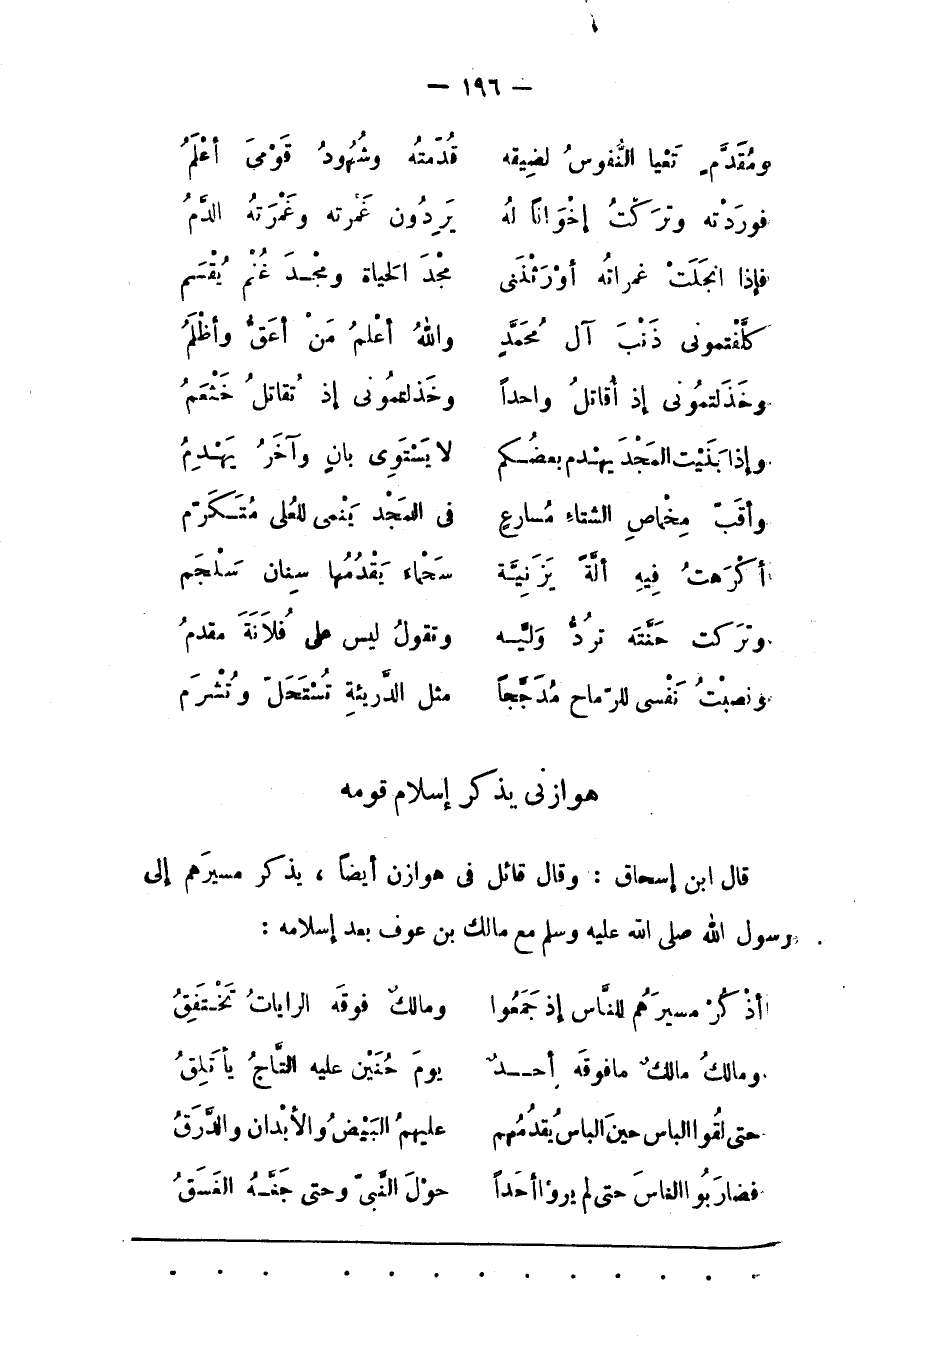 — ١٩٦ —
ومُقَدَّمٍ تَعْيا النُّفوسُ لضِيقه قُدّمتُه وشُهُودُ قَوْمىَ أعْلَمُ
فورَدْته وتَرَكْتُ إخْوَاناً لهُ يَرِدُون غَمْرته وغَمْرَتهُ الدَّمُ
فإذا انجَلَتْ غمراتُه أوْرَثْنَنى مجْدَ الحياة ومجْدَ غُنْمٍ يُقْسَم
كلَّفتمونى ذَنْبَ آل مُحمَّدٍ واللهُ أعْلمُ مَنْ أعَقُّ وأظْلَمُ
وخَذَلتمُونى إذ أُقاتلُ واحداً وخَذلتمُونى إذ تُقاتلُ خَثْعَمُ
وإذا بَنَيْت المَجْدَ يهْدم بعضُكم لا يَسْتَوِى بانٍ وآخَرُ يَهْدِمُ
وأقَبّ مِخْماصِ الشتاءِ مُسارعٍ فى المَجْد يَنْمى للعُلى مُتَكَرّم
أكْرَهتُ فِيهِ ألَّةً يَزَنِيَّة سَحْماء يَقْدُمُها سِنان سَلْجَم
وتَركت حَنَّتَه تردُّ وَليَّه وتقولُ ليس على فُلاَنَةَ مقدمُ
ونصبْتُ نَفْسى للرّماح مُدَجَّجاً مثل الدَّريئةِ تُسْتَحَلّ وتُشْرَم
هوازنى يذكر إسلام قومه
قال ابن إسحاق : وقال قائل فى هوازن أيضاً ، يذكر مسيرَهم إلى
رسول الله صلى الله عليه وسلم مع مالك بن عوف بعد إسلامه :
أذْكُرْ مسيرَهُم للنَّاس إذ جَمَعُوا ومالكٌ فوقَه الراياتُ تَخْتَفِقُ
ومالكُ مالكٌ مافوقَه أحدٌ يومَ حُنَيْن عليه التَّاجُ يأتَلِقُ
حتى لقُوا الباس حينَ الباسُ يُقدُمُهم عليهمُ البَيْضُ والأبْدان والدَّرَقُ
فضارَبُوا الناسَ حتى لم يروْا أحَداً حوْلَ النَّبىّ وحتى جَنَّهُ الغَسَقُ